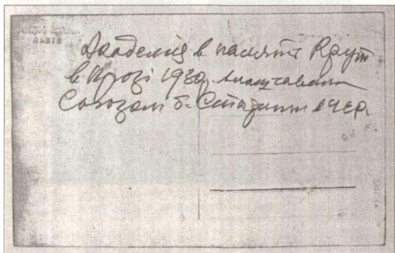 Академія в память Крут
в Празі 1930 р. влаштована
Союзом б. Старшин в ЧСР.